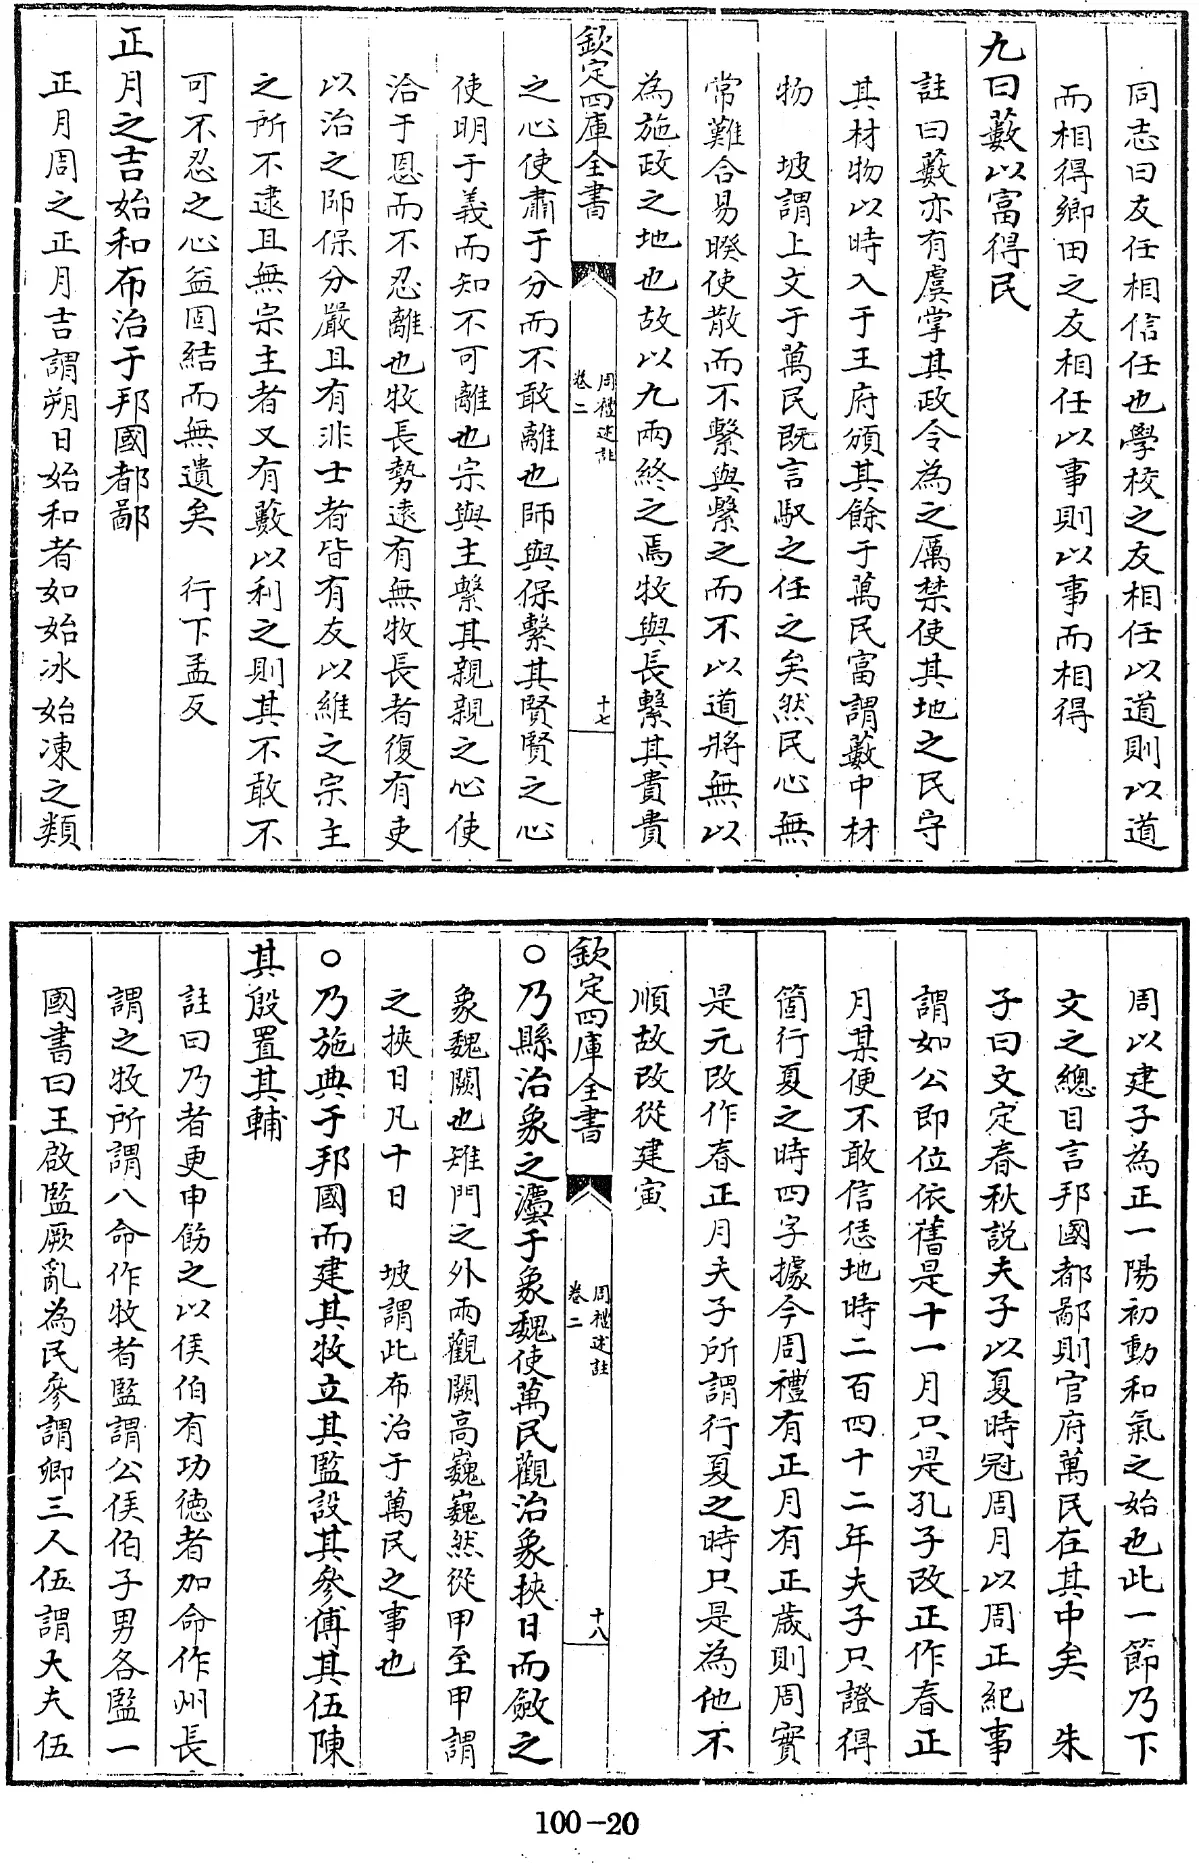 同志曰友任相信任也學校之友相任以道則以道
而相得鄉田之友相任以事則以事而相得
九曰藪以富得民
註曰藪亦有虞掌其政令為之厲禁使其地之民守
其材物以時入于王府頒其餘于萬民富謂藪中材
物　坡謂上文于萬民既言馭之任之矣然民心無
常難合易暌使散而不繫與繫之而不以道將無以
為施政之地也故以九兩終之焉牧與長繫其貴貴
欽定四庫全書
周禮述註
卷二
十七
之心使肅于分而不敢離也師與保繫其賢賢之心
使明于義而知不可離也宗與主繫其親親之心使
洽于恩而不忍離也牧長勢遠有無牧長者復有吏
以治之師保分嚴且有非士者皆有友以維之宗主
之所不逮且無宗主者又有藪以利之則其不敢不
可不忍之心益固結而無遺矣　行下孟反
正月之吉始和布治于邦國都鄙
正月周之正月吉謂朔日始和者如始冰始凍之類
周以建子為正一陽初動和氣之始也此一節乃下
文之總目言邦國都鄙則官府萬民在其中矣　朱
子曰文定春秋説夫子以夏時冠周月以周正紀事
謂如公即位依舊是十一月只是孔子改正作春正
月某便不敢信恁地時二百四十二年夫子只證得
箇行夏之時四字據今周禮有正月有正歲則周實
是元改作春正月夫子所謂行夏之時只是為他不
順故改從建寅
欽定四庫全書
周禮述註
卷二
十八
○乃縣治象之灋于象魏使萬民觀治象挾日而斂之
象魏闕也雉門之外兩觀闕高巍巍然從甲至甲謂
之挾日凡十日　坡謂此布治于萬民之事也
○乃施典于邦國而建其牧立其監設其參傅其伍陳
其殷置其輔
註曰乃者更申飭之以侯伯有功徳者加命作州長
謂之牧所謂八命作牧者監謂公侯伯子男各監一
國書曰王啟監厥亂為民參謂卿三人伍謂大夫伍
100-20